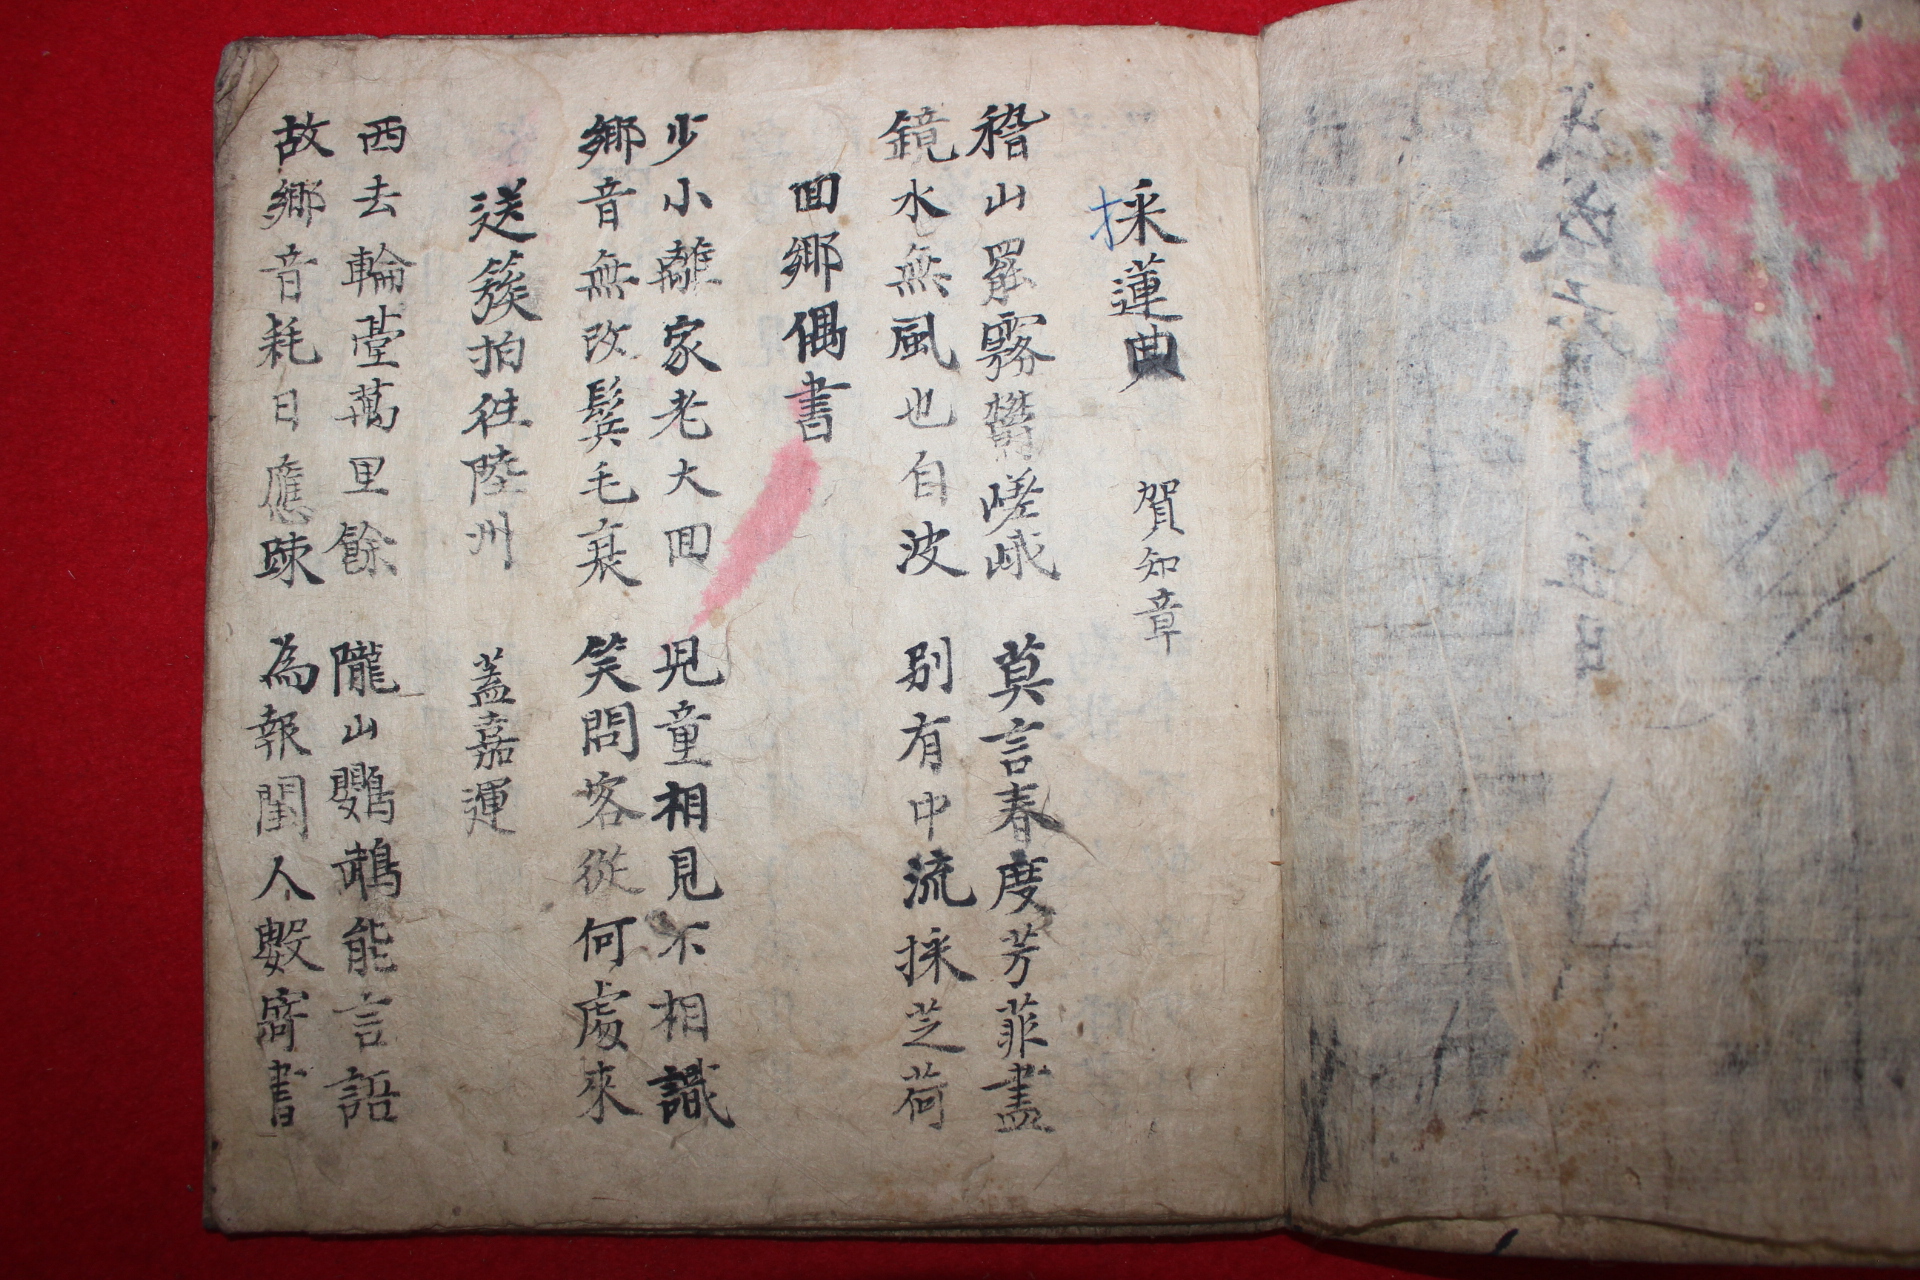 採蓮曲 賀知章
稽山罷霧鬱嵯峨 莫言春度芳菲盡
鏡水無風也自波 別有中流採芝荷
囬鄉偶書
少小離家老大囬 兒童相見不相識
鄉音無改鬢毛衰 笑問客從何處來
送簇拍往陸州 蓋嘉運
西去輪臺萬里餘 隴山鸚鵡能言語
故鄉音耗日應踈 為報閨人數寄書